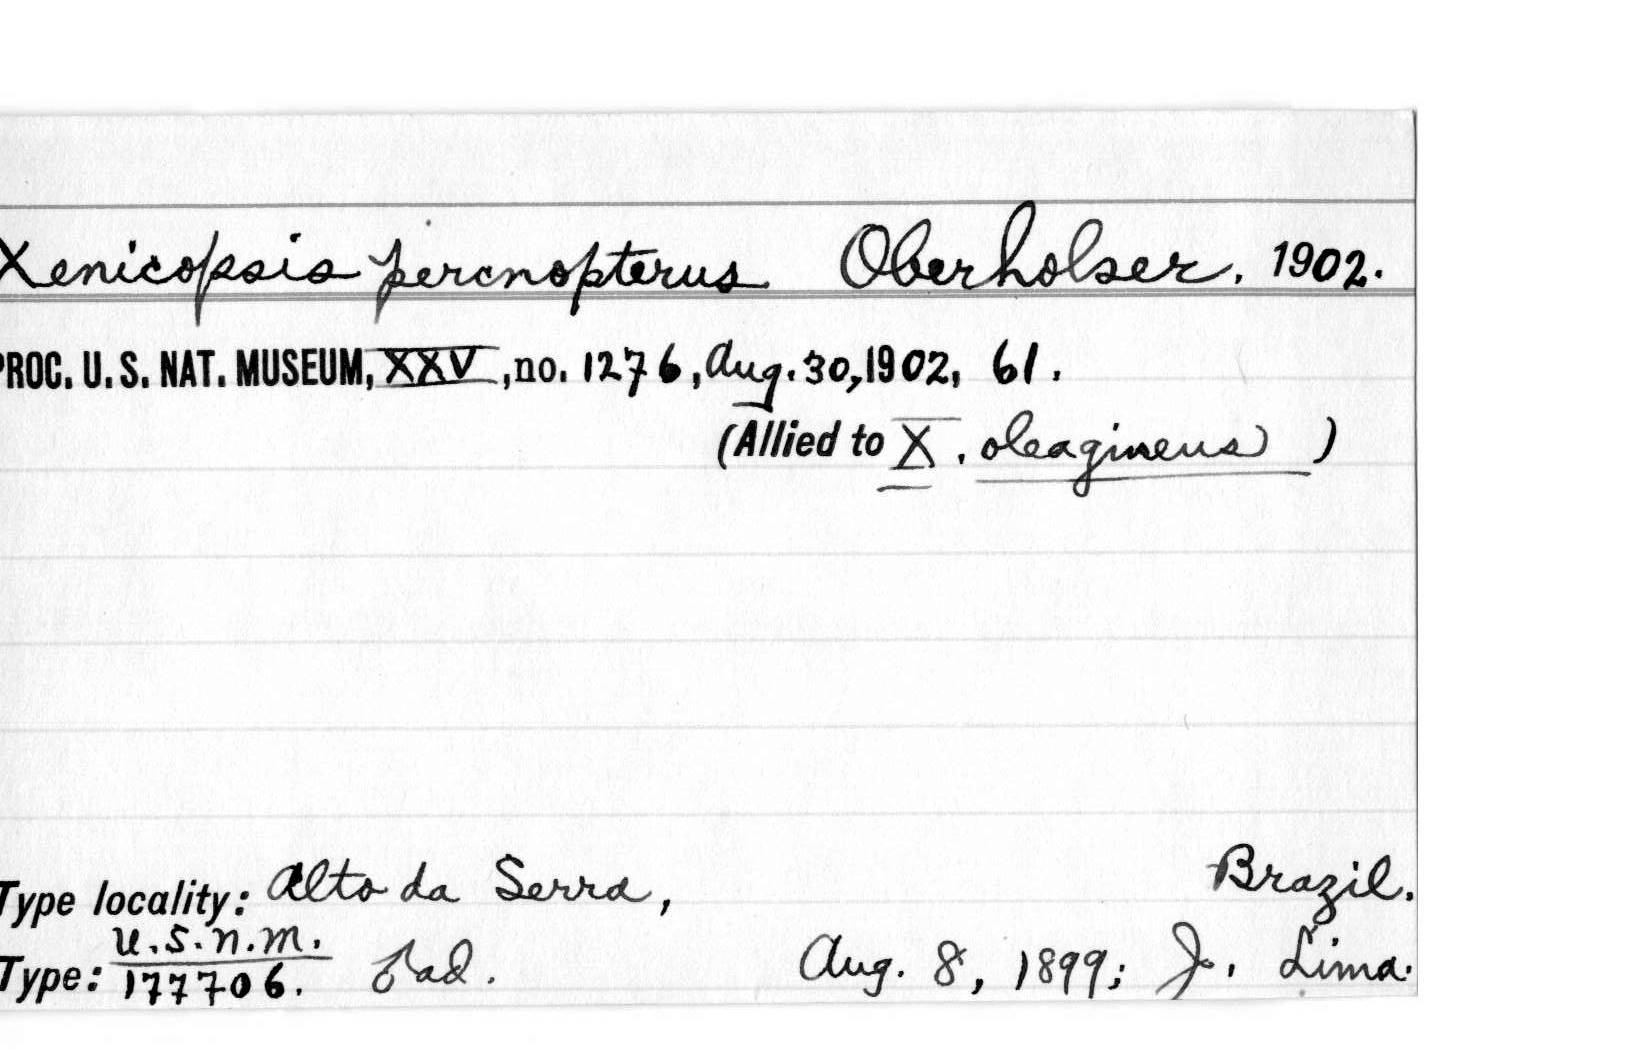 Xenicopsis percnopterus Oberholser, 1902.
PROC. U. S. NAT. MUSEUM, XXV, no. 1276, Aug. 30, 1902, 61.
(Allied to X. oleagineus)
Type locality: Alto da Serra, Brazil.
U.S.N.M.
Type: 177706. ad. Aug. 8, 1899; J. Lima.